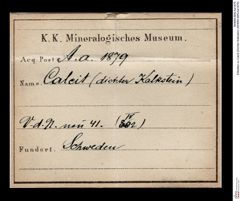 K. K. Mineralogisches Museum.
Acq. Post A.a. 1879
Name: Calcit (dichter Kalkstein)
V.d.N. neu 41.
Fundort: Schweden